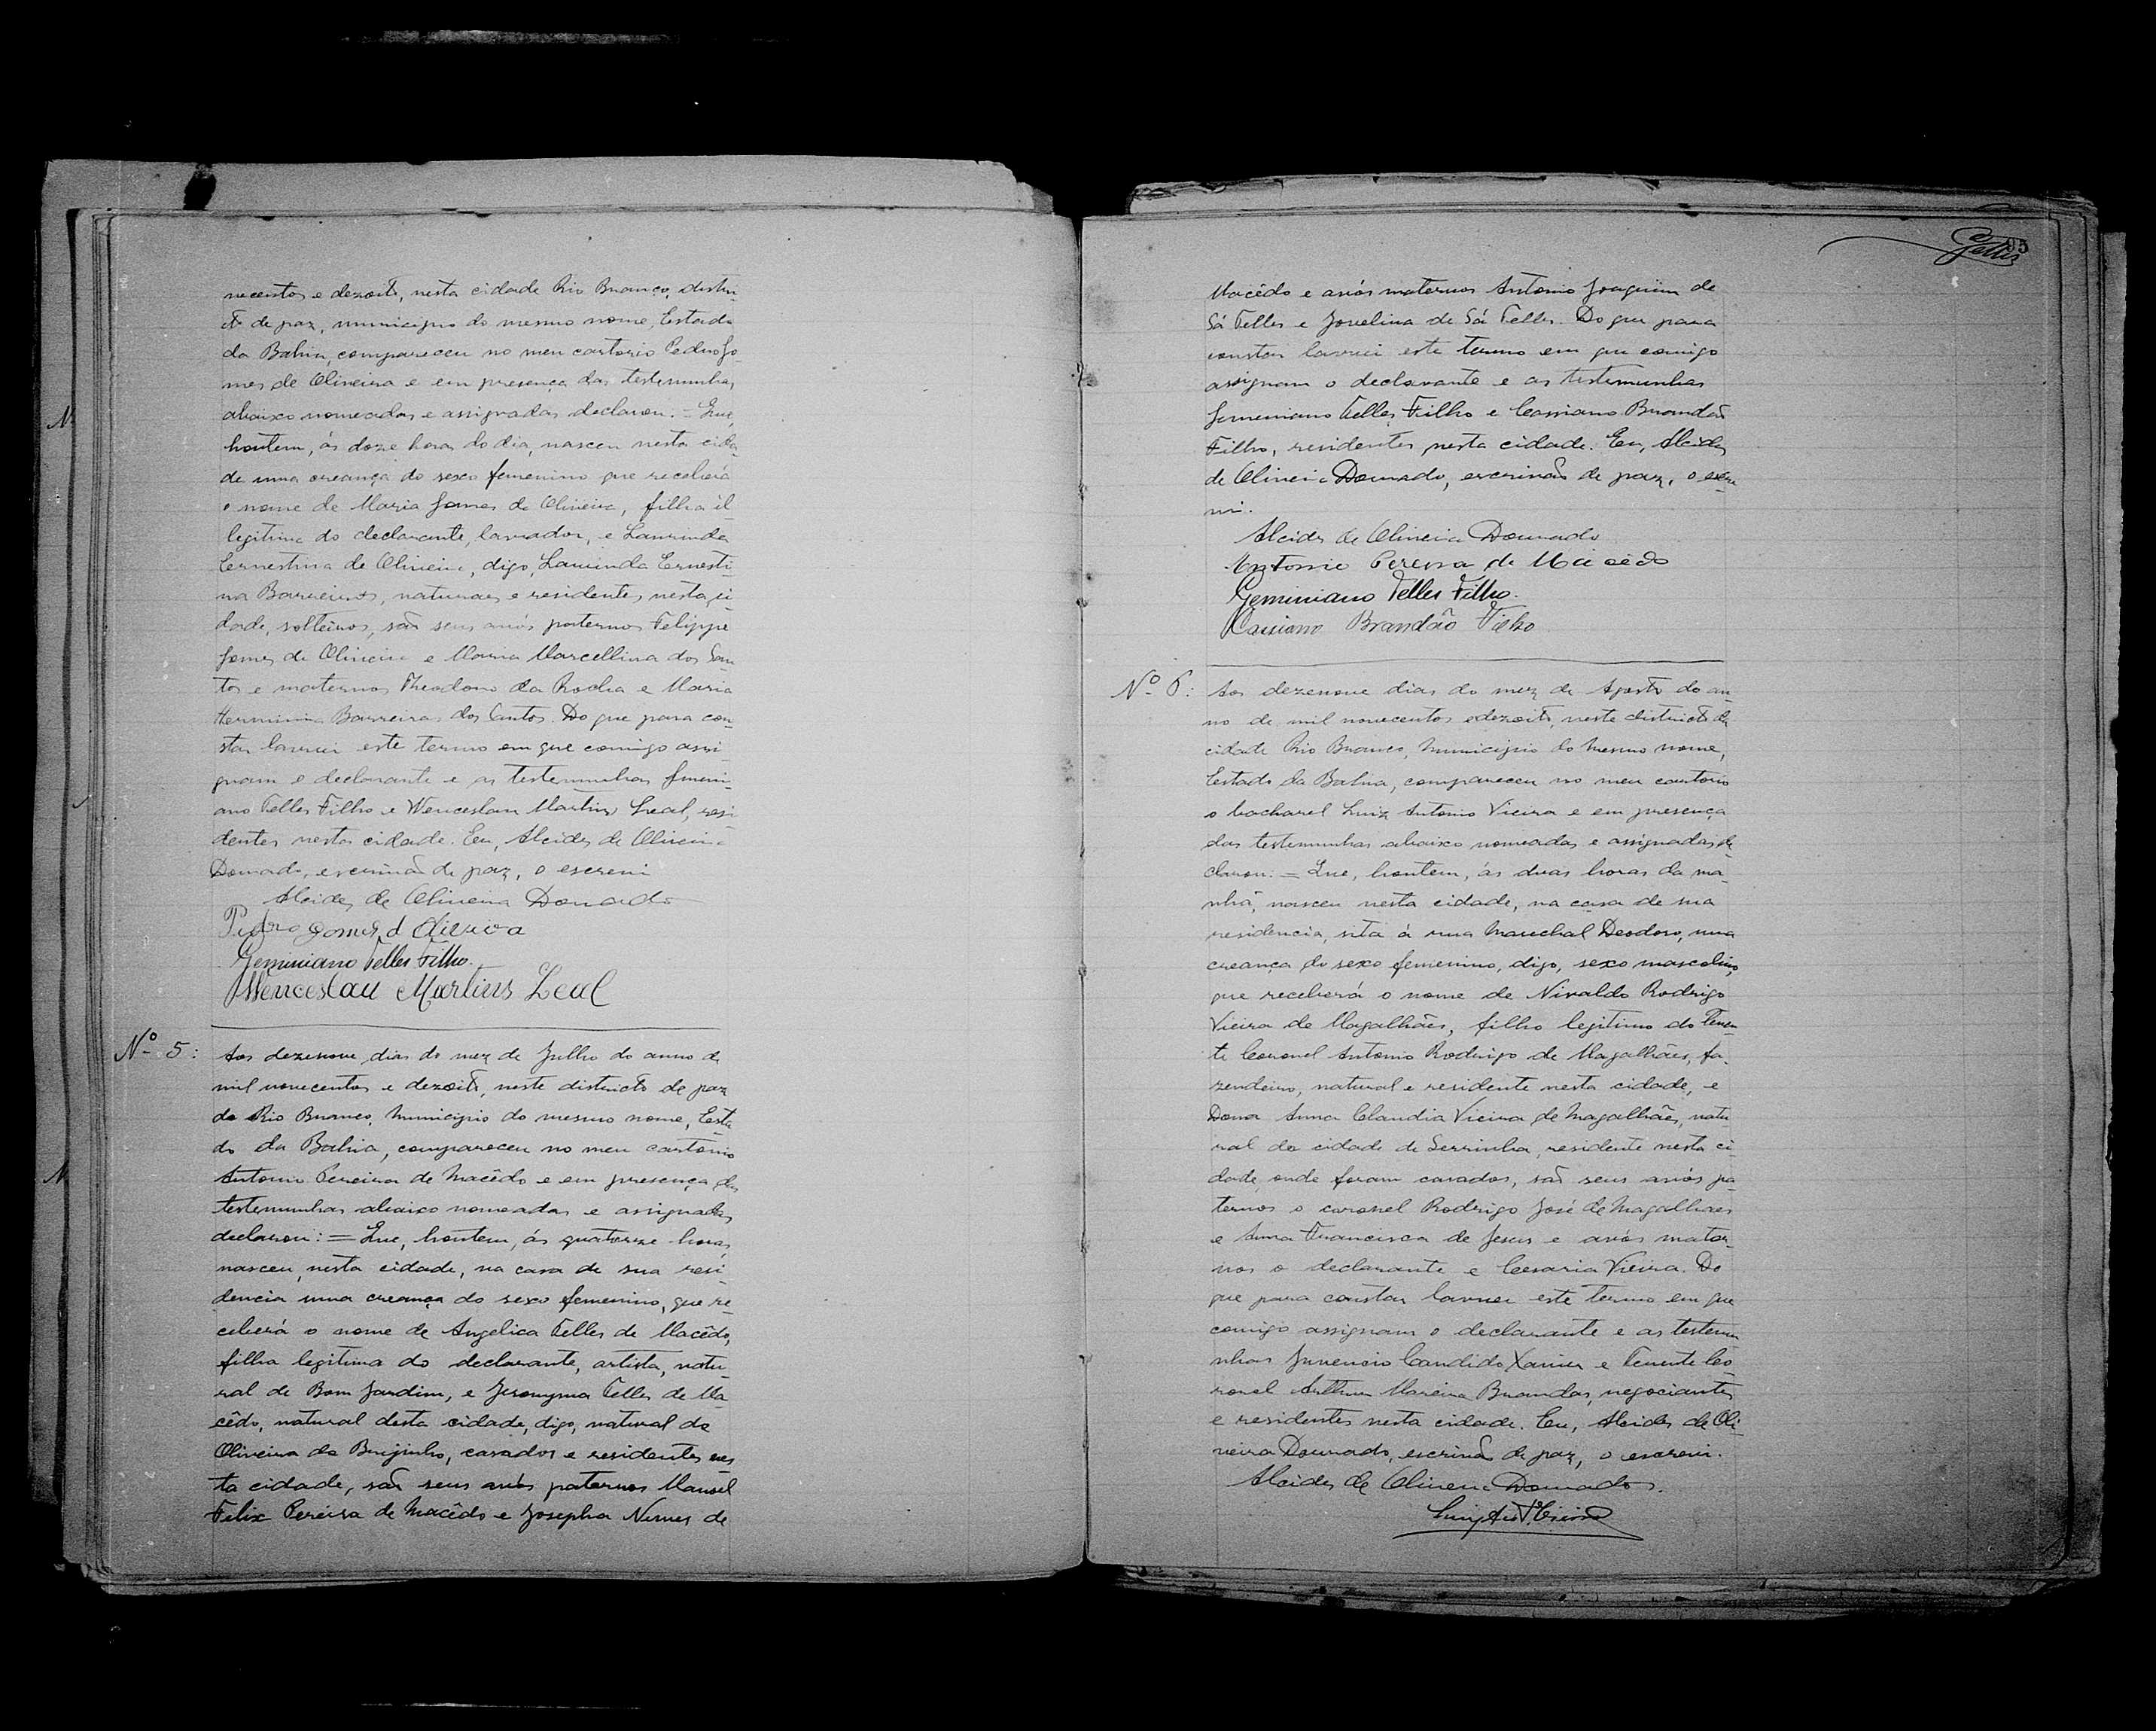 necentos e dezoito, nesta cidade Rio Branco, distri-
cto de paz, municipio do mesmo nome, Estado
da Bahia, compareceu no meu cartorio Pedro Go-
mes de Oliveira e em presença das testemunhas
abaixo nomeadas e assignadas declarou: = Que,
hontem, ás doze horas do dia, nasceu nesta cida-
de uma creança do sexo femenino que receberá
o nome de Maria Gomes de Oliveira, filha il-
legitima do declarante, lavrador, e Laurinda
Ernestina de Oliveira, digo, Laurinda Ernesti-
na Barreiros, naturaes e residentes nesta ci-
dade, solteiros, são seus avós paternos Felippe
Gomes de Oliveira e Maria Marcellina dos San-
tos e maternos Theodoro da Rocha e Maria
Herminia Barreiras dos Santos. Do que para con-
star lavrei este termo em que comigo assi-
gnam o declarante e as testemunhas Gemini-
ano Telles Filho e Wenceslau Martins Leal, resi-
dentes nesta cidade. Eu, Alcides de Oliveira
Dourado, escrivão de paz, o escrevi
Alcides de Oliveira Dourado
Pedro Gomes d Oliveira
Geminiano Telles Filho.
Wenceslau Martins Leal
Nº 5: Aos dezenove dias do mez de Julho do anno de
mil novecentos e dezoito, neste districto de paz
do Rio Branco, Municipio do mesmo nome, Esta-
do da Bahia, compareceu no meu cartorio
Antonio Pereira de Macêdo e em presença das
testemunhas abaixo nomeadas e assignadas
declarou: = Que, hontem, ás quatorze horas,
nasceu, nesta cidade, na casa de sua resi-
dencia uma creança do sexo femenino, que re-
ceberá o nome de Angelica Telles de Macêdo,
filha legitima do declarante, artista, natu-
ral de Bom Jardim, e Jeronyma Telles de Ma-
cêdo, natural desta cidade, digo, natural de
Oliveira do Brejinho, casados e residentes nes-
ta cidade, são seus avós paternos Manoel
Felix Pereira de Macêdo e Josepha Nunes de
95
Telles
Macêdo e avós maternos Antonio Joaquim de
Sá Telles e Jovelina de Sá Telles. Do que para
constar lavrei este termo em que comigo
assignam o declarante e as testemunhas
Geminiano Telles Filho e Cassiano Brandão
Filho, residentes nesta cidade. Eu, Alcides
de Oliveira Dourado, escrivão de paz, o escre-
vi.
Alcides de Oliveira Dourado
Antonio Pereira de Macêdo
Geminiano Telles Filho.
Cassiano Brandão Filho
Nº 6: Aos dezenove dias do mez de Agosto do an-
no de mil novecentos e dezoito, neste districto da
cidade Rio Branco, Municipio do mesmo nome,
Estado da Bahia, compareceu no meu cartorio
o bacharel Luiz Antonio Vieira e em presença
das testemunhas abaixo nomeadas e assignadas de-
clarou: = Que, hontem, ás duas horas da ma-
nhã, nasceu nesta cidade, na casa de sua
residencia, sita á rua Marechal Deodoro, uma
creança do sexo femenino, digo, sexo masculino,
que receberá o nome de Nivaldo Rodrigo
Vieira de Magalhães, filho legitimo do Tenen-
te Coronel Antonio Rodrigo de Magalhães, fa-
zendeiro, natural e residente nesta cidade, e
Dona Anna Claudia Vieira de Magalhães, natu-
ral da cidade de Serrinha, residente nesta ci-
dade, onde foram casados, são seus avós pa-
ternos o coronel Rodrigo José de Magalhães
e Anna Francisca de Jesus e avós mater-
nos o declarante e Cesaria Vieira. Do
que para constar lavrei este termo em que
comigo assignam o declarante e as testemu-
nhas Juvencio Candido Xavier e Tenente Co-
ronel Arthur Moreira Brandas, negociantes
e residentes nesta cidade. Eu, Alcides de Oli-
veira Dourado, escrivão de paz, o escrevi.
Alcides de Oliveira Dourado.
Luiz Ant Vieira